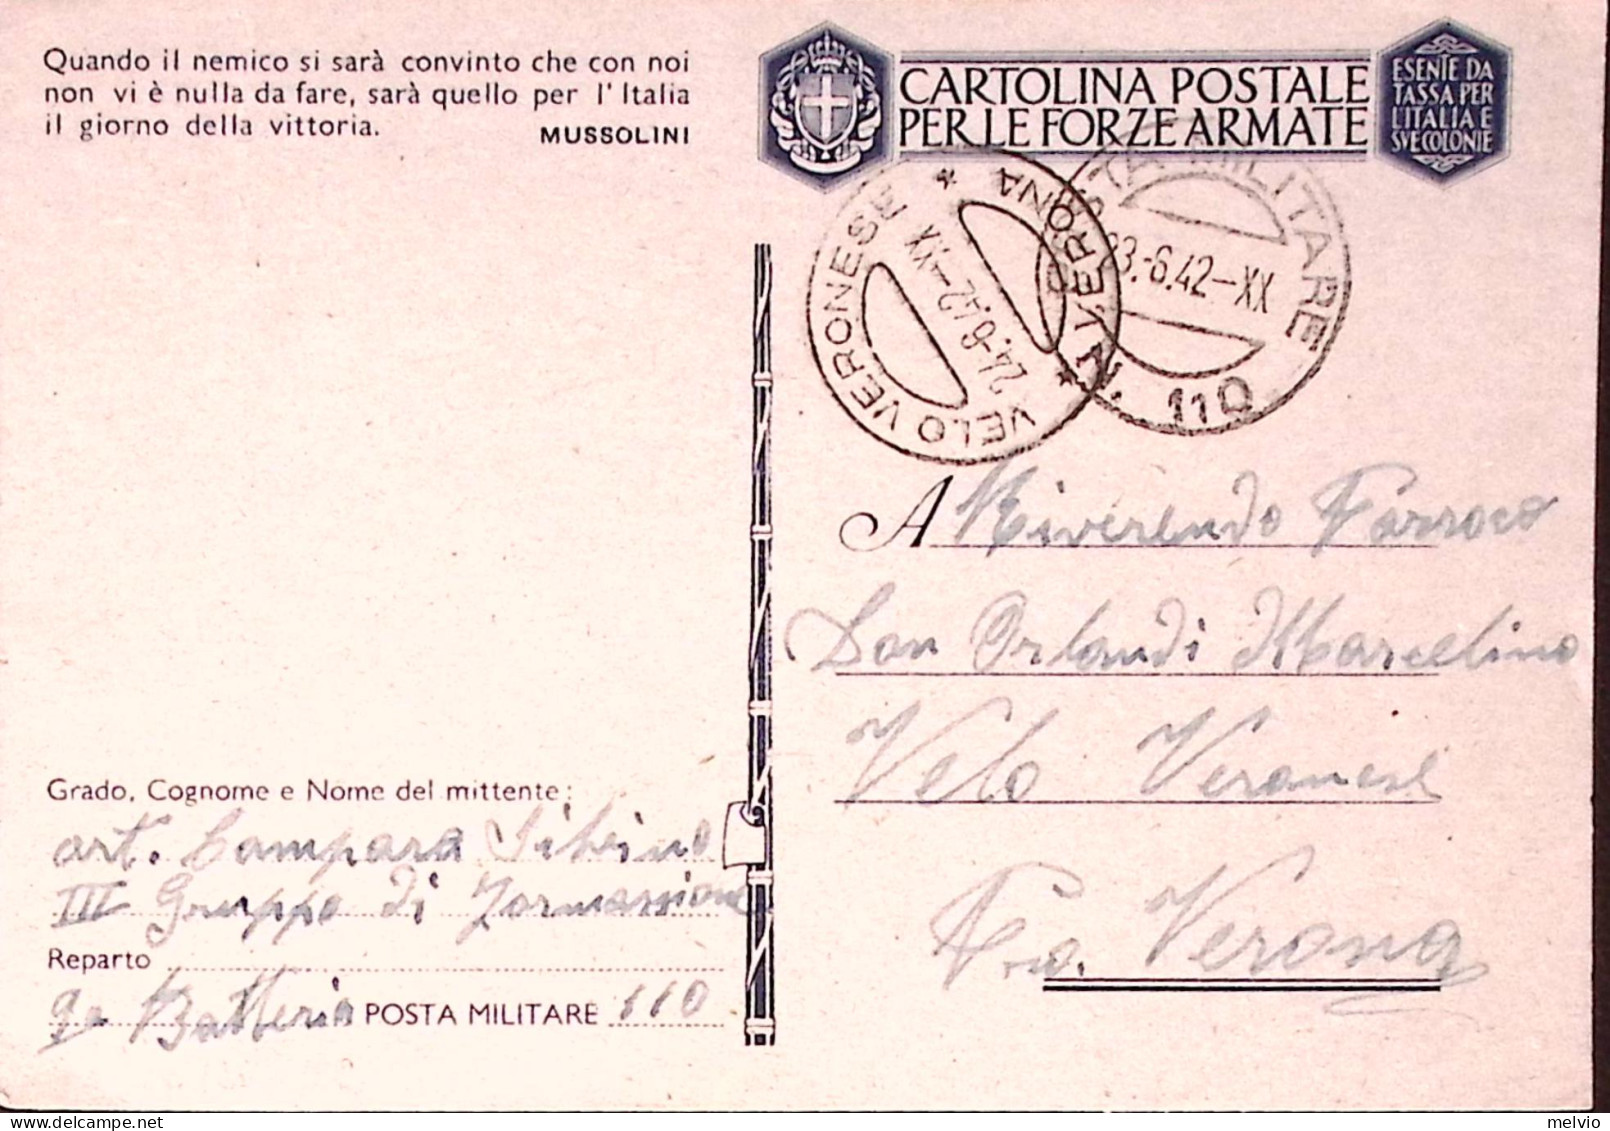 Quando il nemico si sarà convinto che con noi
non vi è nulla da fare, sarà quello per l'Italia
il giorno della vittoria.
MUSSOLINI
CARTOLINA POSTALE
PER LE FORZE ARMATE
ESENTE DA
TASSA PER
L'ITALIA E
SVE COLONIE
VELO VERONESE * VERONA *
24.6.42-XX
POSTA MILITARE
23.-6.42-XX
N. 110
A Riverendo Parroco
Don Orlandi Marcelino
Velo Veronese
Verona
Grado, Cognome e Nome del mittente:
art. Campara Silvino
III Gruppo di Formassione
Reparto
9a Batteria POSTA MILITARE 110
melvio